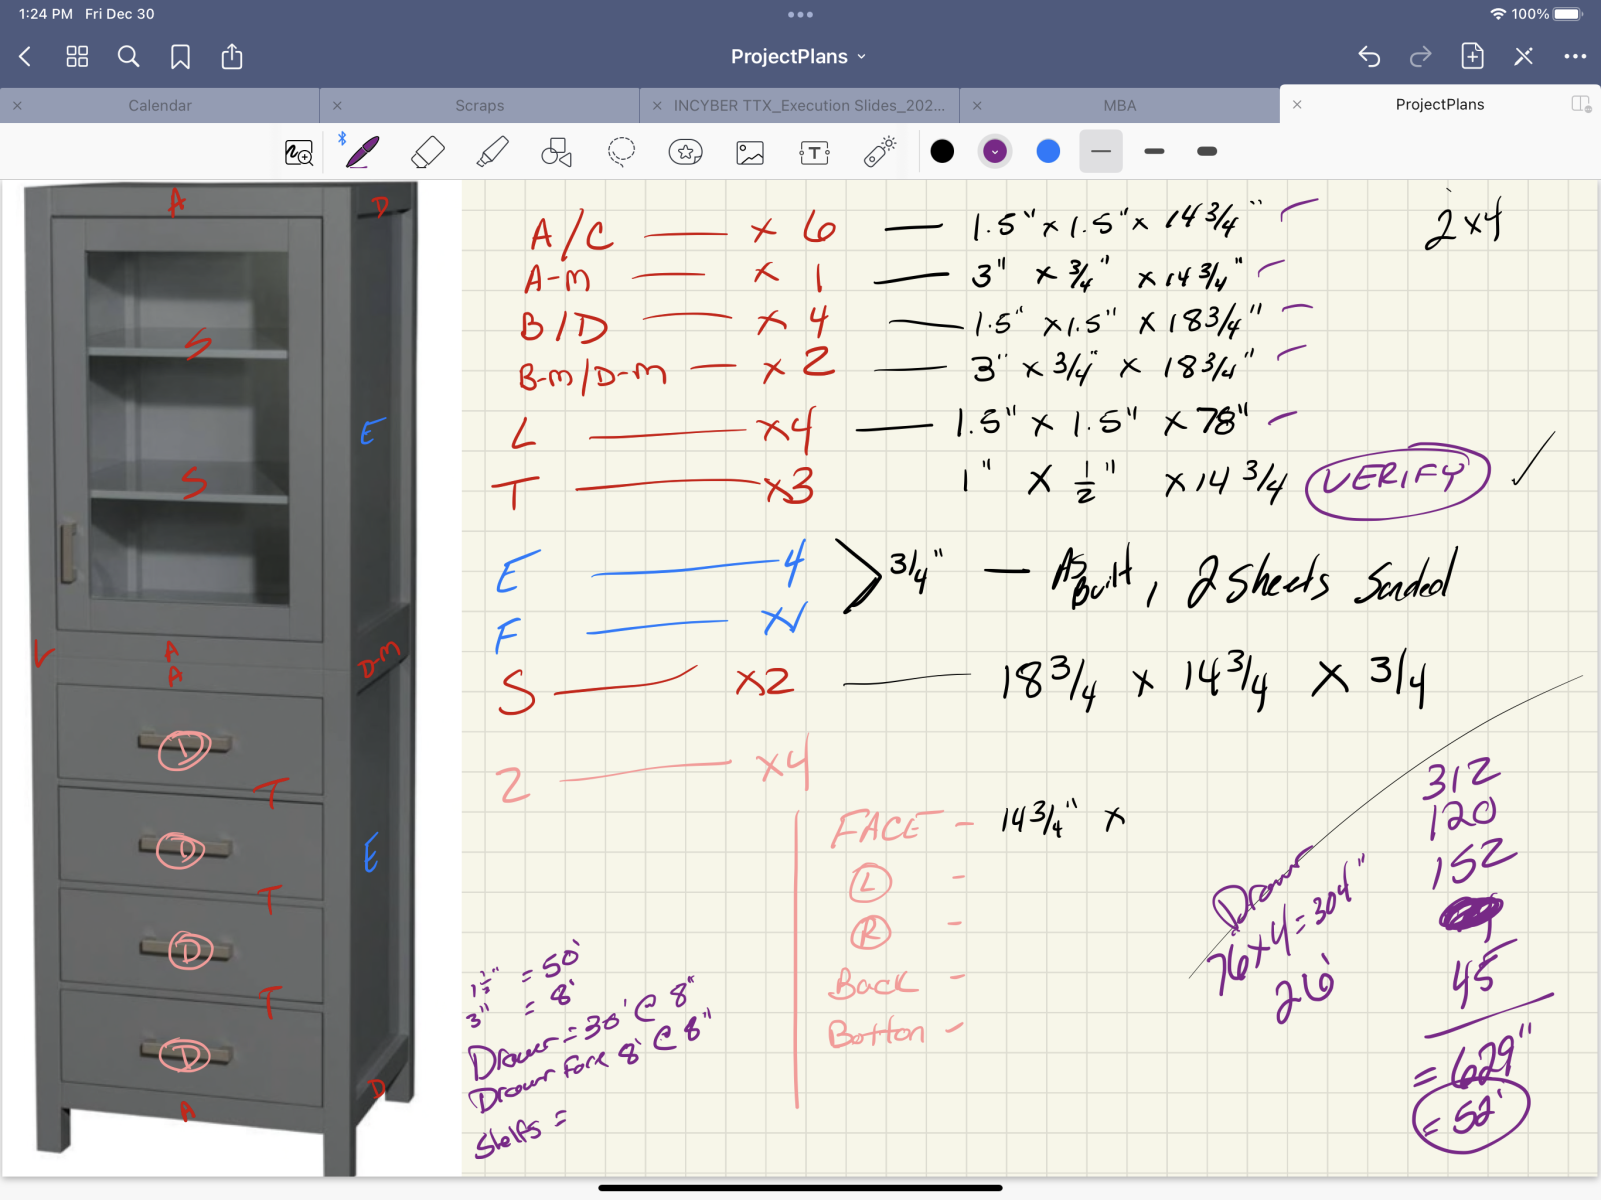 1:24 PM Fri Dec 30
100%
ProjectPlans
Calendar
Scraps
INCYBER TTX_Execution Slides_202...
MBA
ProjectPlans
T
A
D
S
S
E
L
A
A
D-M
D
T
D
E
T
D
T
D
D
A
A/C — x 6 — 1.5" x 1.5" x 14 3/4"
2x4
A-M — x 1 — 3" x 3/4" x 14 3/4"
B/D — x 4 — 1.5" x 1.5" x 18 3/4"
B-M/D-M — x 2 — 3" x 3/4" x 18 3/4"
L — x4 — 1.5" x 1.5" x 78"
T — x3 1" x 1/2" x 14 3/4 VERIFY ✓
E — 4 > 3/4" — As Built, 2 Sheets Sanded
F —
S — x2 — 18 3/4 x 14 3/4 x 3/4
2 — x4
FACE - 14 3/4" x
L -
R -
Back -
Bottom -
1 1/2" = 50'
3" = 8'
Drawer = 30' @ 8"
Drawer Face 8' @ 8"
Shelfs =
Drawer
76x4=304"
26'
312
120
152
45
= 629"
= 52'